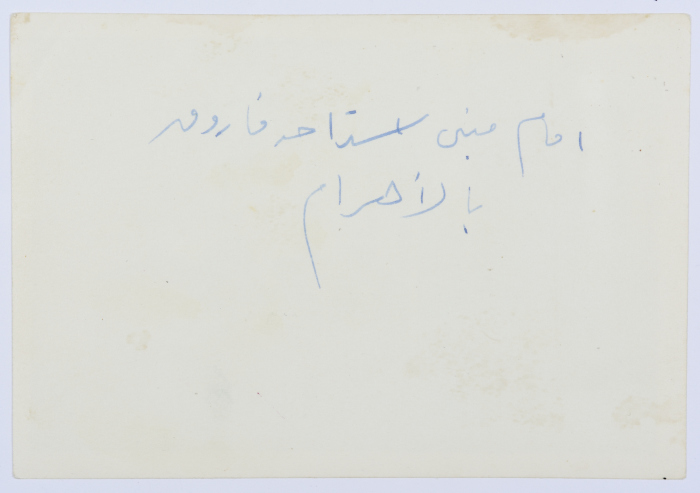 امام مبنى استراحه فاروق
بالأهرام